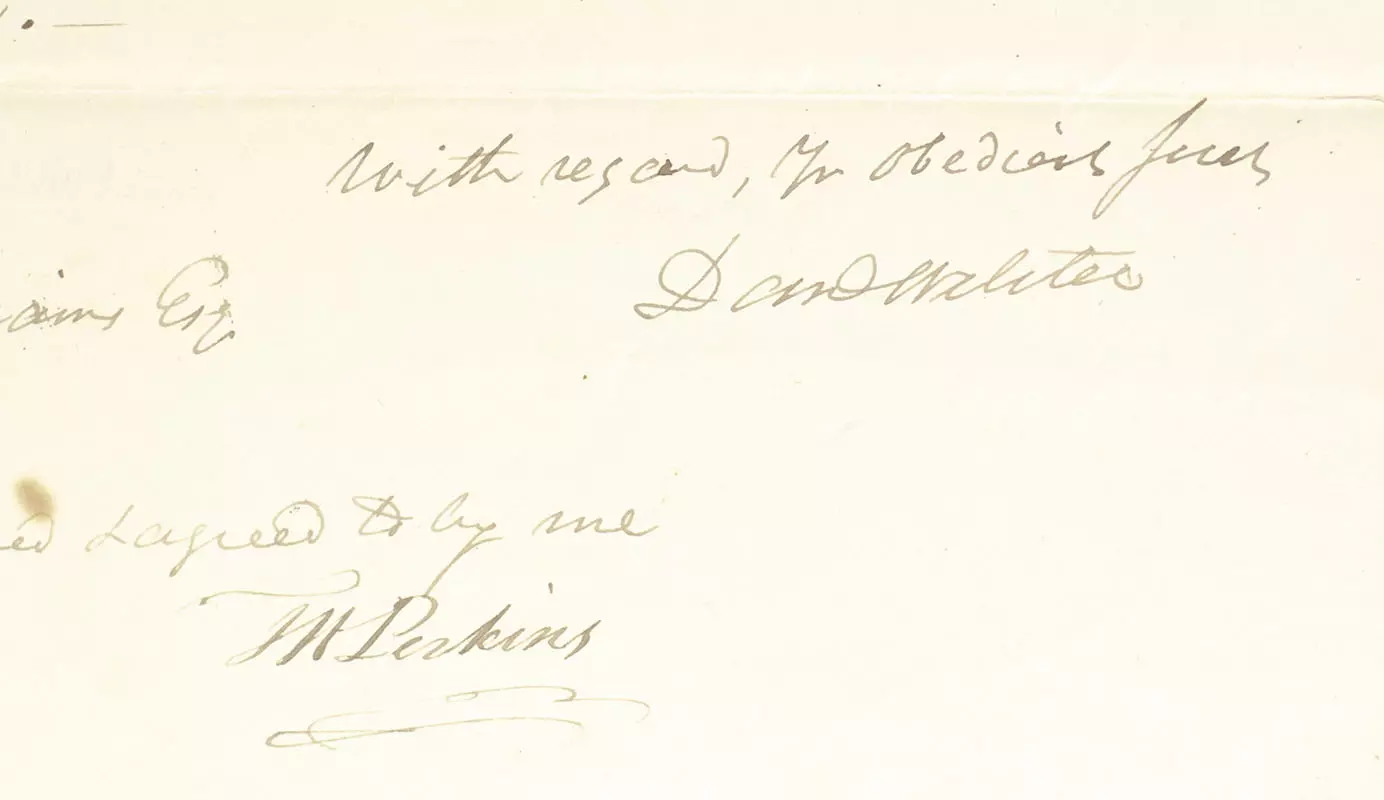 With regard, Yr obedient Servt
Danl Webster
Esq
& agreed to by me
TH Perkins